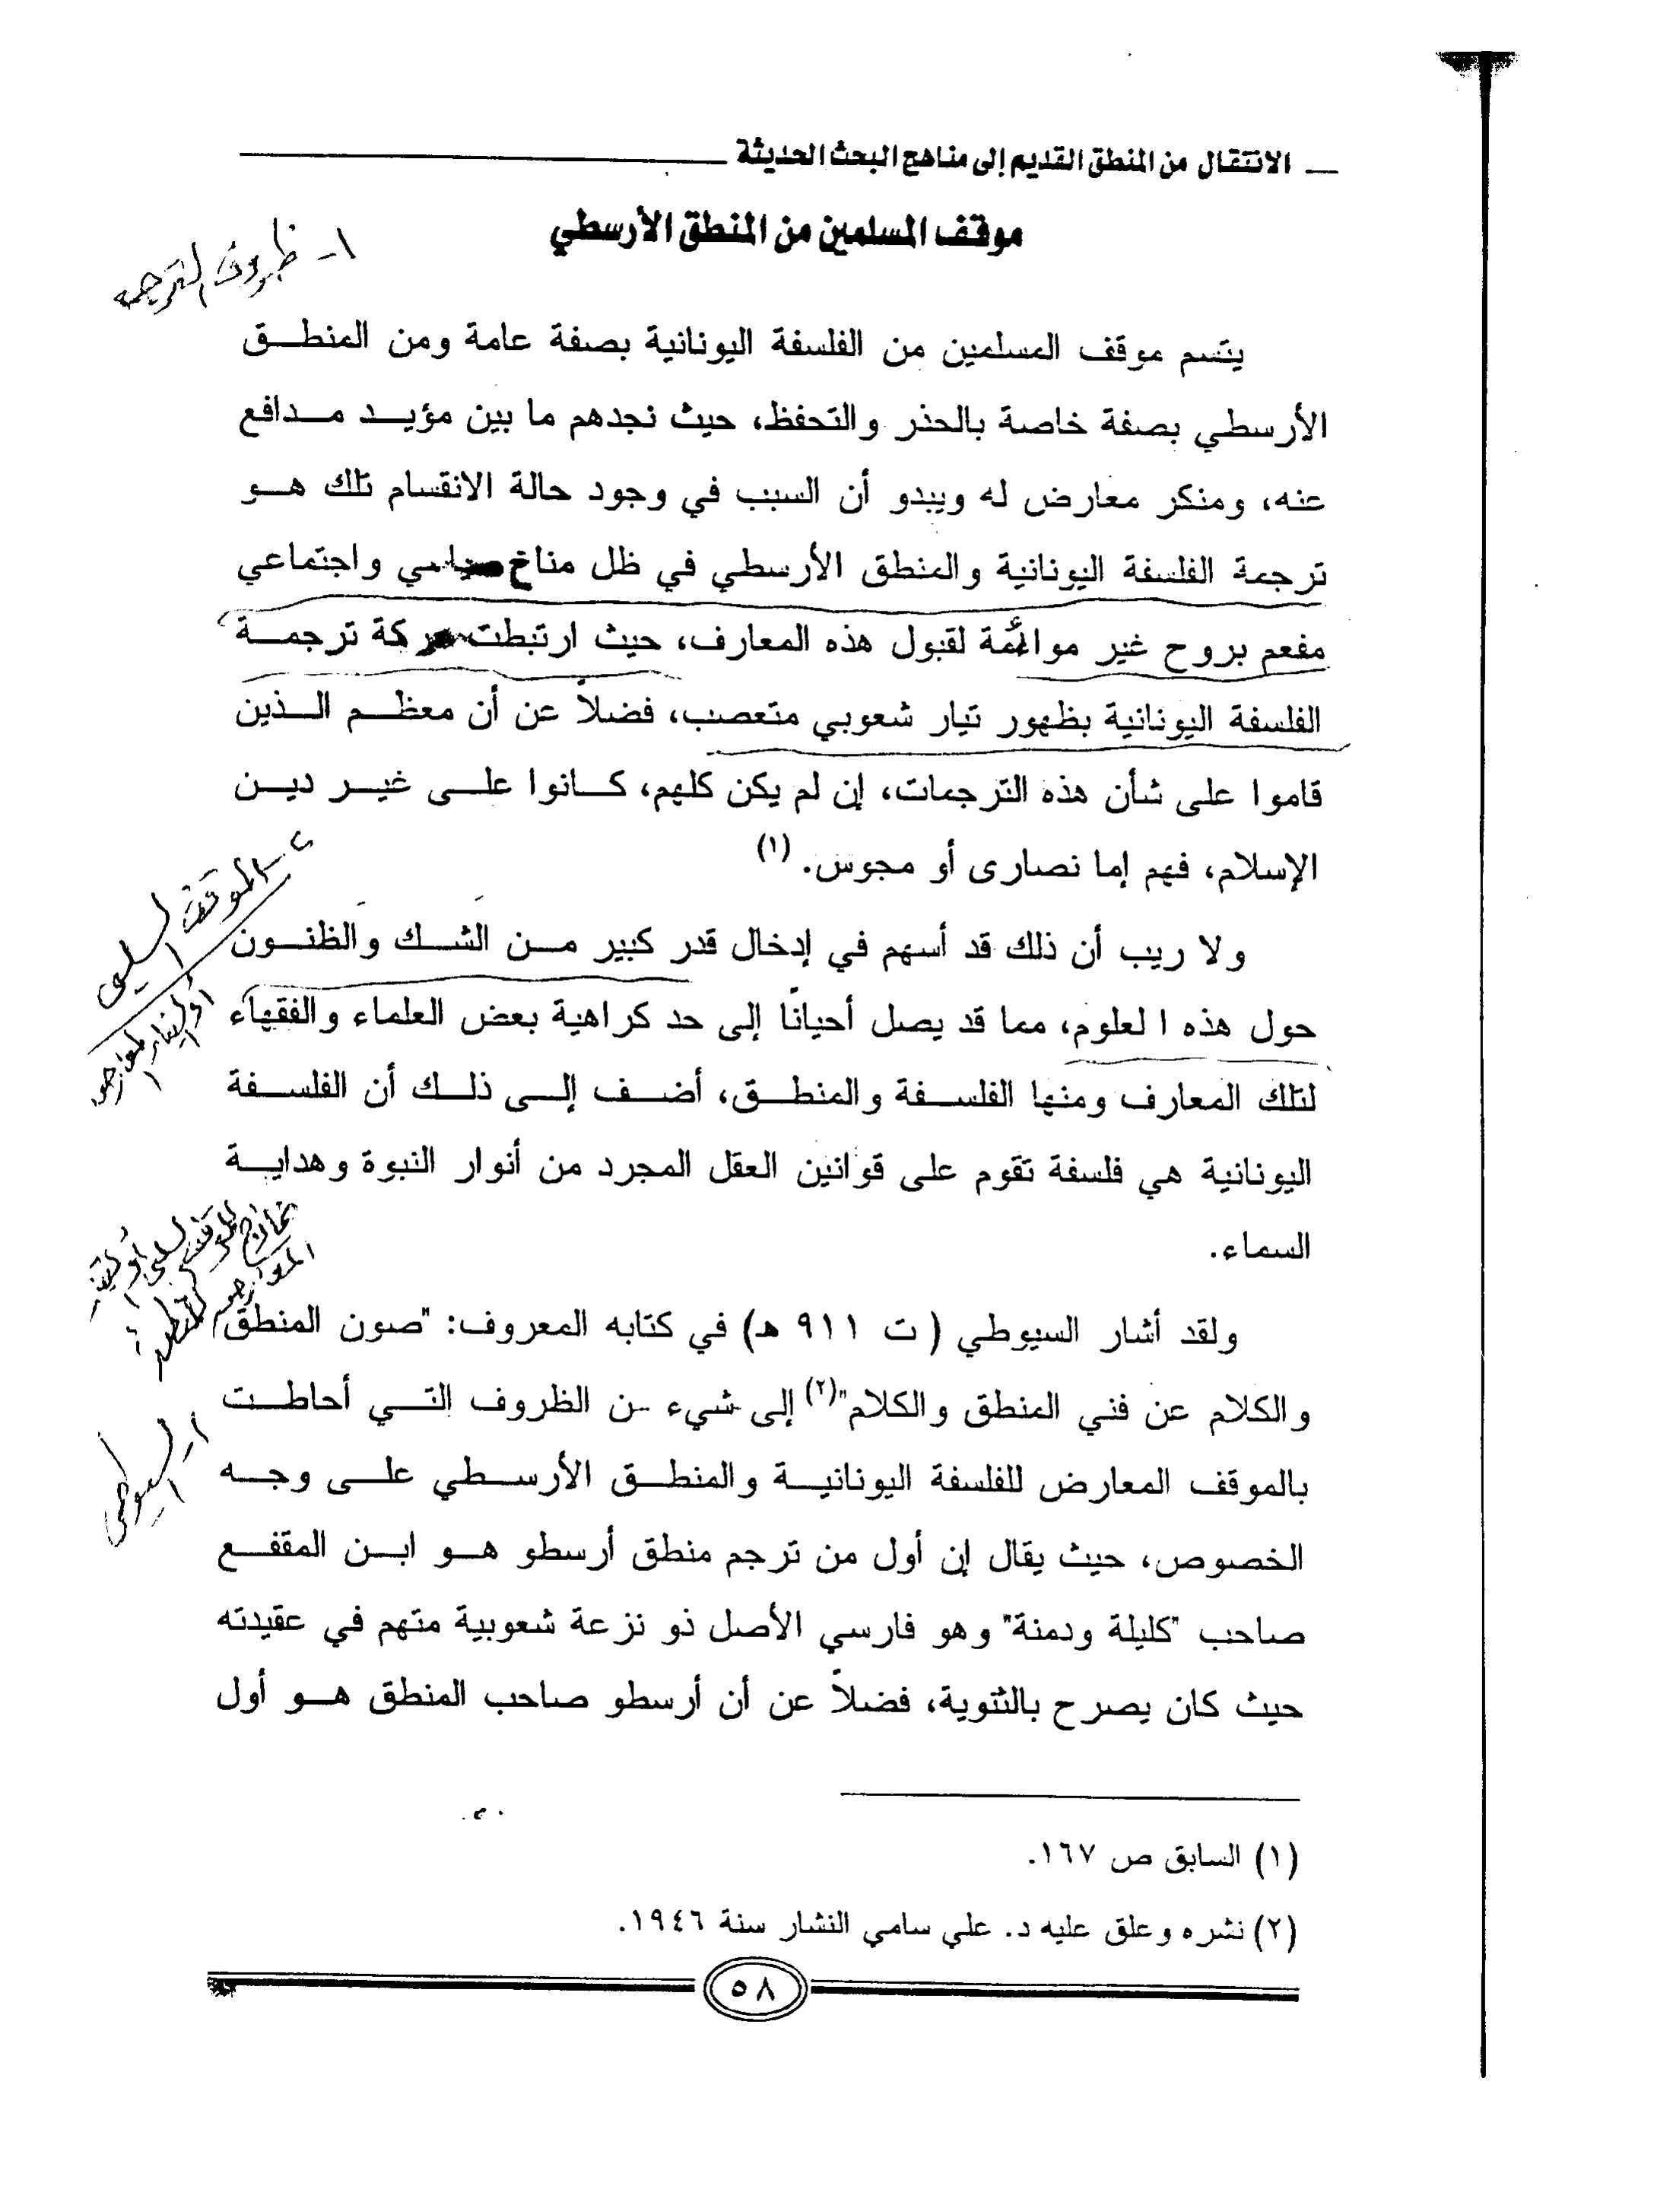 الانتقال من المنطق القديم إلى مناهج البحث الحديثة
موقف المسلمين من المنطق الأرسطي
١- ظروف الترجمة
يتسم موقف المسلمين من الفلسفة اليونانية بصفة عامة ومن المنطق
الأرسطي بصفة خاصة بالحذر والتحفظ، حيث نجدهم ما بين مؤيد مدافع
عنه، ومنكر معارض له ويبدو أن السبب في وجود حالة الانقسام تلك هو
ترجمة الفلسفة اليونانية والمنطق الأرسطي في ظل مناخ سياسي واجتماعي
مفعم بروح غير موائمة لقبول هذه المعارف، حيث ارتبطت حركة ترجمة
الفلسفة اليونانية بظهور تيار شعوبي متعصب، فضلاً عن أن معظم الذين
قاموا على شأن هذه الترجمات، إن لم يكن كلهم، كانوا على غير دين
الإسلام، فهم إما نصارى أو مجوس. (١)
٢- الموقف السلبي
أو التيار المعارض
ولا ريب أن ذلك قد أسهم في إدخال قدر كبير من الشك والظنون
حول هذه العلوم، مما قد يصل أحيانًا إلى حد كراهية بعض العلماء والفقهاء
لتلك المعارف ومنها الفلسفة والمنطق، أضف إلى ذلك أن الفلسفة
اليونانية هي فلسفة تقوم على قوانين العقل المجرد من أنوار النبوة وهداية
السماء.
نماذج للموقف السلبي أو
المعارض
ولقد أشار السيوطي (ت ٩١١ هـ) في كتابه المعروف: "صون المنطق
والكلام عن فني المنطق والكلام"(٢) إلى شيء من الظروف التي أحاطت
١- السيوطي
بالموقف المعارض للفلسفة اليونانية والمنطق الأرسطي على وجه
الخصوص، حيث يقال إن أول من ترجم منطق أرسطو هو ابن المقفع
صاحب "كليلة ودمنة" وهو فارسي الأصل ذو نزعة شعوبية متهم في عقيدته
حيث كان يصرح بالثنوية، فضلاً عن أن أرسطو صاحب المنطق هو أول
(١) السابق ص ١٦٧.
(٢) نشره وعلق عليه د. علي سامي النشار سنة ١٩٤٦.
٥٨